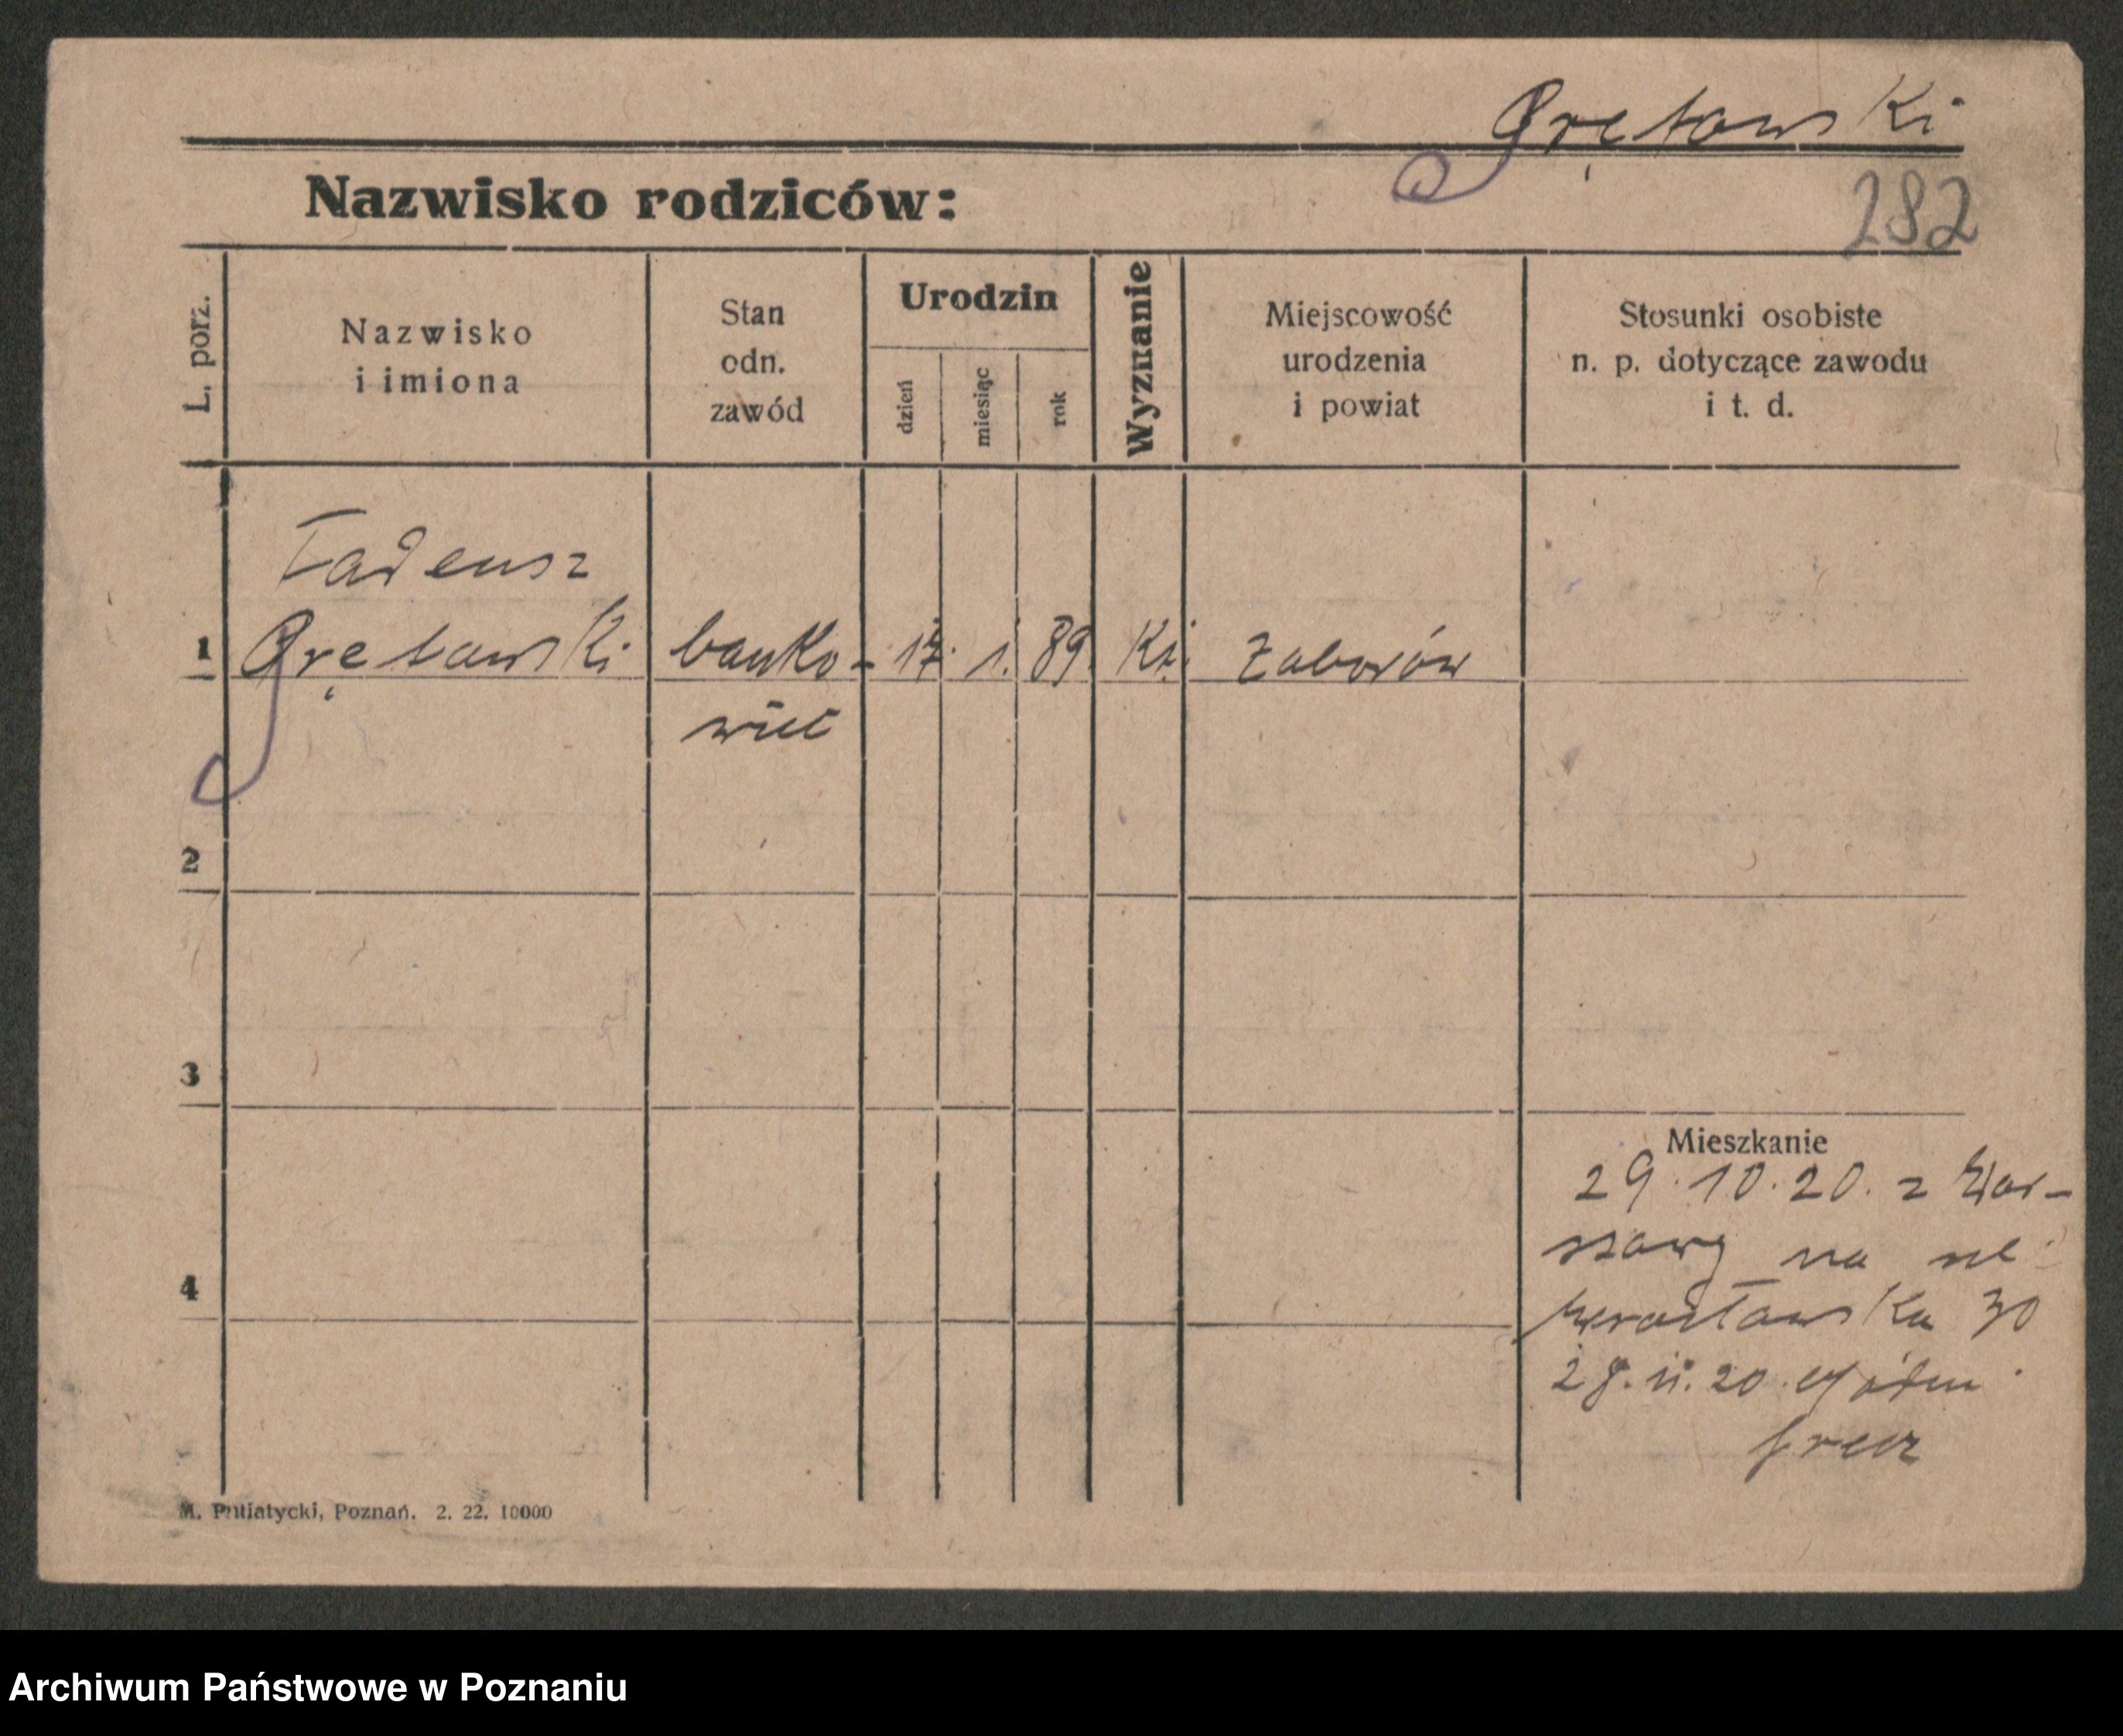 Grętowski
Nazwisko rodziców:
282
L. porz.
Nazwisko
i imiona
Stan
odn.
zawód
Urodzin
dzień
miesiąc
rok
Wyznanie
Miejscowość
urodzenia
i powiat
Stosunki osobiste
n. p. dotyczące zawodu
i t. d.
Tadeusz
1 Grętowski banko- 17. 1. 89. Kt. Zaborów
wiec
2
3
Mieszkanie
29.10.20. z War-
szawy na ul
4
30
28.11.20.
M. Putiatycki, Poznań. 2. 22. 10000
Archiwum Państwowe w Poznaniu